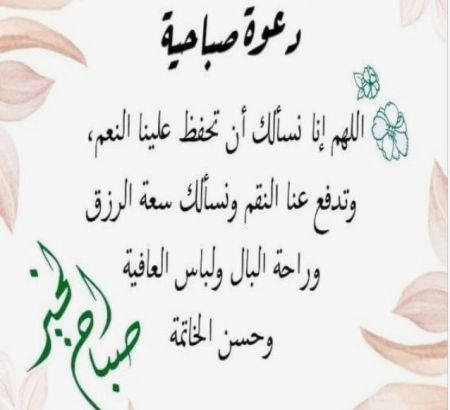 دعوة صباحية
اللهم إنا نسألك أن تحفظ علينا النعم،
وتدفع عنا النقم ونسألك سعة الرزق
وراحة البال ولباس العافية
وحسن الخاتمة
صباح الخير